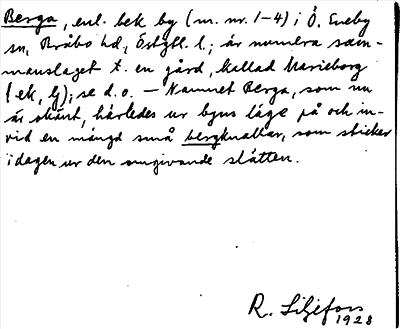 Berga, enl. bek by (m. nr. 1-4) i Ö. Eneby
sn, Bråbo hd, Östgtl. l.; är numera sam-
manslaget t. en gård, kallad Marieborg
(ek, lj); se d. o. — Namnet Berga, som nu
är okänt, härledes ur byns läge på och in-
vid en mängd små bergknallar, som sticker
i dagen ur den omgivande slätten.
R. Liljefors
1928